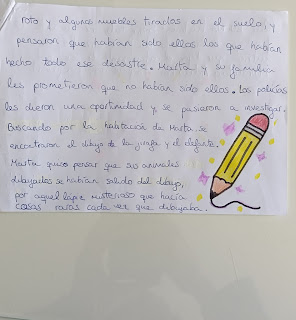 roto y algunos muebles tirados en el suelo, y
pensaron que habían sido ellos los que habían
hecho todo ese desastre. Marta y su familia
les prometieron que no habían sido ellos. Los policías
les dieron una oportunidad y se pusieron a investigar.
Buscando por la habitación de Marta se
encontraron el dibujo de la jirafa y el elefante.
Marta quiso pensar que sus animales
dibujados se habían salido del dibujo,
por aquel lápiz misterioso que hacía
cosas raras cada vez que dibujaba.